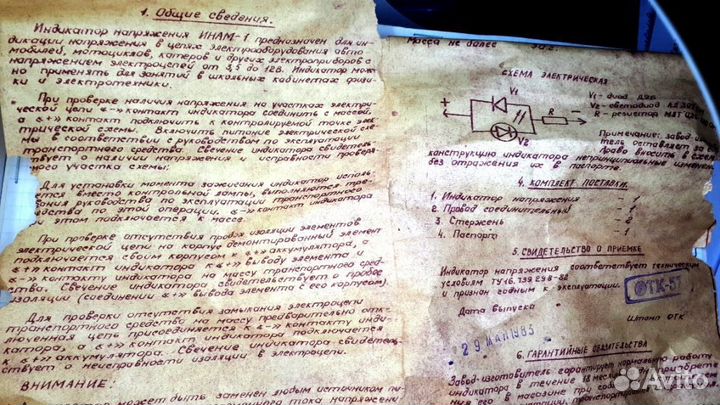 1. Общие сведения.
Индикатор напряжения ИНАМ-1 предназначен для ин-
дикации напряжения в цепях электрооборудования авто
мобилей, мотоциклов, катеров и других электроприборов с
напряжением электроцепей от 3,5 до 12В. Индикатор мож
но применять для занятий в школьных кабинетах физи-
ки и электротехники.
При проверке наличия напряжения на участках электри-
ческой цепи «-» контакт индикатора соединить с массой,
а «+» контакт подключить к контролируемой точке элек
трической схемы. Включить питание электрической схе
мы в соответствии с руководством по эксплуатации
транспортного средства. Свечение индикатора свидетель
ствует о наличии напряжения и исправности проверя
ного участка схемы.
Для установки момента зажигания индикатор исполь-
зуется вместо контрольной лампы, выполняются тре
бования руководства по эксплуатации транспортного
средства по этой операции. «-» контакт индикатора
при этом подключается к массе.
При проверке отсутствия пробоя изоляции элементов
электрической цепи на корпус демонтированный элемент
подключается своим корпусом к «+» аккумулятора, а
«+» контакт индикатора к «+» выводу элемента и
«-» контакту индикатора на массу транспортного сред-
ства. Свечение индикатора свидетельствует о пробое
изоляции (соединении «+» вывода элемента с его корпусом).
Для проверки отсутствия замыкания электроцепи
транспортного средства на массу предварительно отк-
люченную цепь присоединяется к «-» контакту инди
катора, а «+» контакт индикатора подключается
к «+» аккумулятора. Свечение индикатора свидетельс
твует о неисправности изоляции в электроцепи.
ВНИМАНИЕ!
может быть заменен любым источником пи
тока напряжени
Масса не более
СХЕМА ЭЛЕКТРИЧЕСКАЯ
V1
V1 - диод Д9Б
V2 - светодиод
R - резистор МЛТ
+
R
-
V2
Примечание: завод изго
тель оставляет за
право вносить в схе
конструкцию индикатора непринципиальные изменения
без отражения их в паспорте.
4. КОМПЛЕКТ ПОСТАВКИ.
1. Индикатор напряжения
2. Провод соединительный
3. Стержень
4. Паспорт
5. СВИДЕТЕЛЬСТВО О ПРИЕМКЕ
Индикатор напряжения соответствует техническим
условиям ТУ16.739.298-80
и признан годным к эксплуатации.
ОТК-57
Дата выпуска
Штамп ОТК
29 МАЯ 1985
6. ГАРАНТИЙНЫЕ ОБЯЗАТЕЛЬСТВА
Завод-изготовитель гарантирует нормальную работу
индикатора в течение 18 месяцев
ния его в магазине при
Avito